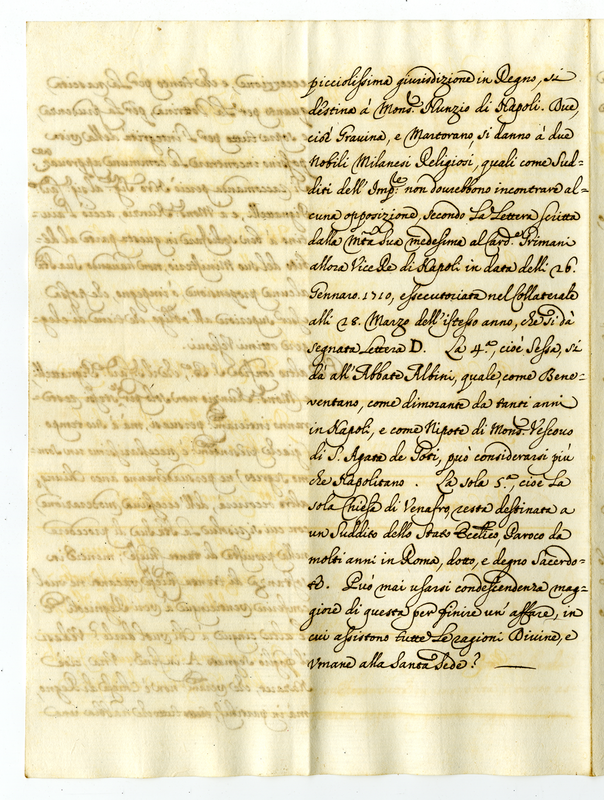 picciolissima giurisdizione in Regno, si
destina à Mons.r Nunzio di Napoli. Due,
cioè Gravina, e Martorano, si danno à due
Nobili Milanesi Religiosi, quali come Sud=
diti dell'Imp.le non dovrebbono incontrare al=
cuna opposizione, secondo La Lettera scritta
dalla M.tà Sua medesima al Card.l Grimani
allora Vice Re di Napoli in data delli 26.
Gennaro. 1710, essecutoriata nel Collaterale
alli 28. Marzo dell'istesso anno, che si dà
segnata Lettera D. La 4.a, cioè Sessa, si
dà all'Abbate Albini, quale, come Bene=
ventano, come dimorante da tanti anni
in Napoli, e come Nipote di Mons.r Vescovo
di S. Agata de Goti, può considerarsi più
che Napolitano. La sola 5.a, cioè La
sola Chiesa di Venafro, resta destinata a
un Suddito dello Stato Eccl.ico, Paroco da
molti anni in Roma, dotto, e degno Sacerdo=
te. Può mai usarsi condescendenza mag=
giore di questa per finire un'affare, in
cui assistono tutte Le ragioni Divine, e
Umane alla Santa Sede?